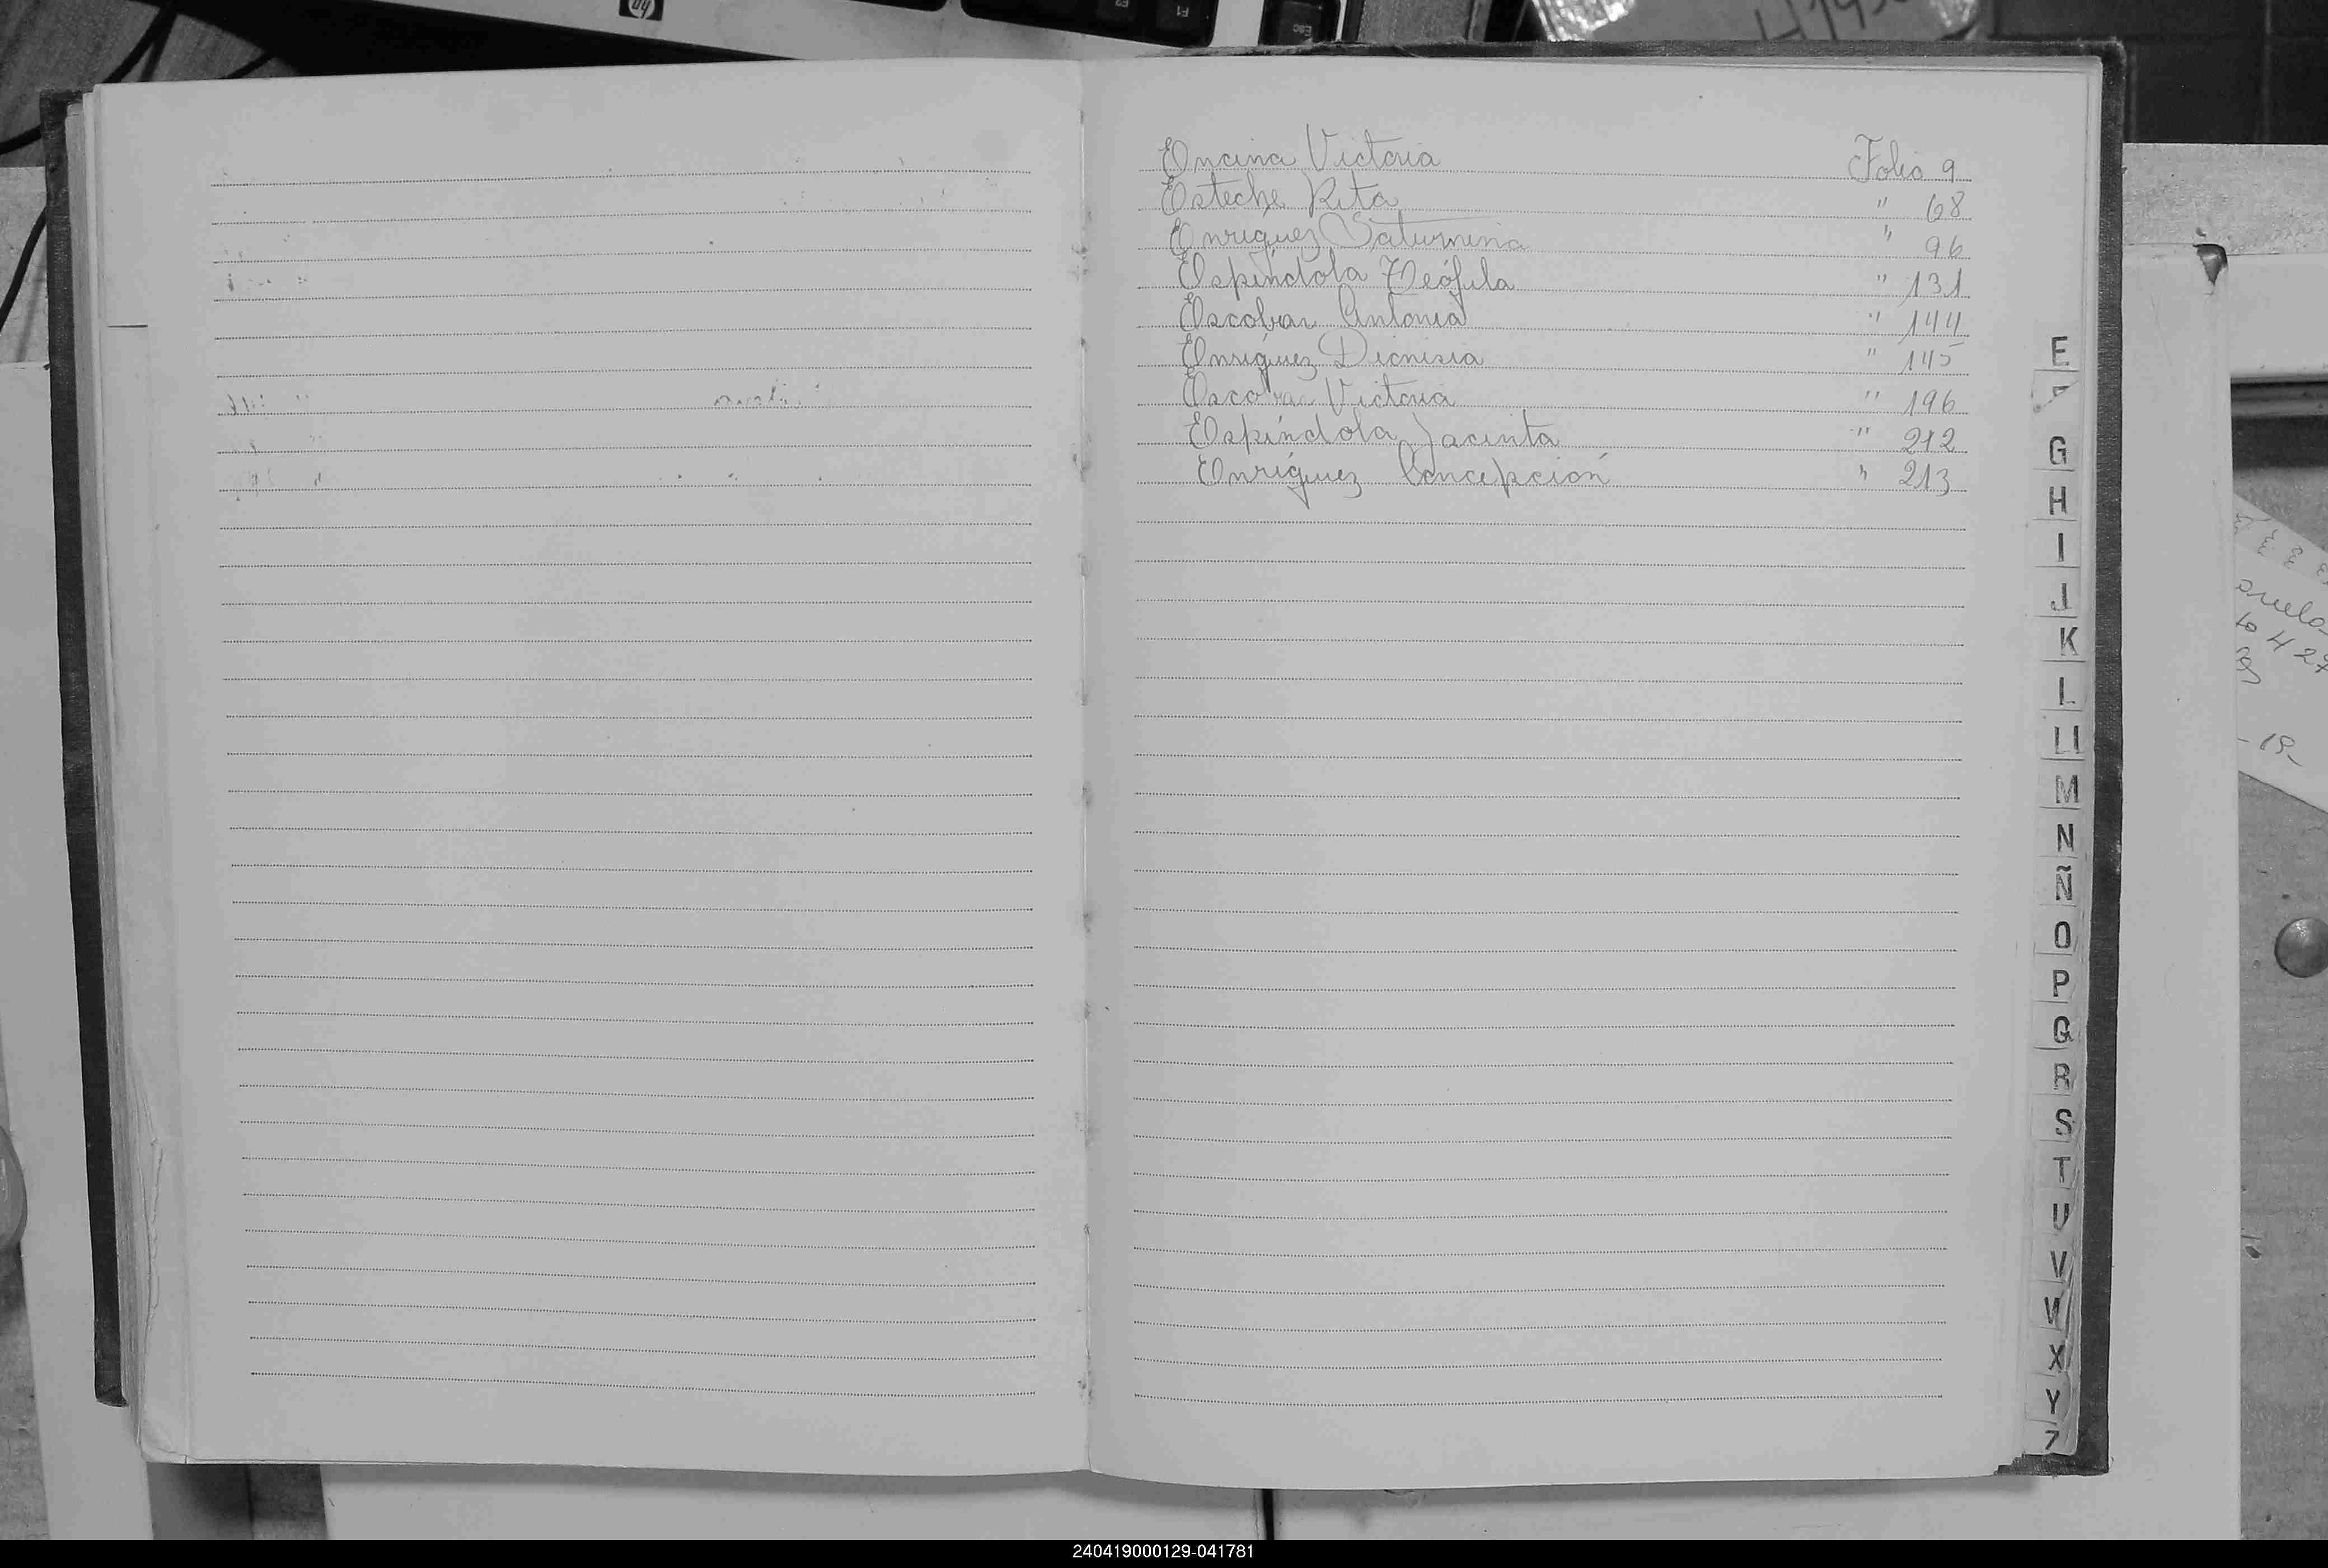 Encina Victoria Folio 9
Esteche Rita " 68
Enriquez Saturnina " 96
Espíndola Teófila " 131
Escobar Antonia " 144
Enríquez Dionisia " 145
Escobar Victoria " 196
Espíndola Jacinta " 212
Enríquez Concepción " 213
E
F
G
H
I
J
K
L
LL
M
N
Ñ
O
P
Q
R
S
T
U
V
W
X
Y
Z
240419000129-041781